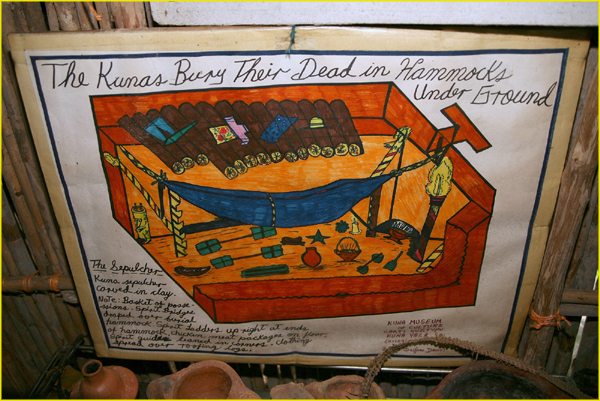 The Kunas Bury Their Dead in Hammocks
Under Ground
The Sepulcher
Kuna sepulcher
carved in clay.
Note: Basket of posse-
ssions. Spirit Bridges
draped over burial
hammock. Spirit ladders upright at ends
of hammock, chicken, meat packages on floor.
Spirit guides leaned in corners. Clothing
spread over roofing logs.
KUNA MUSEUM
OF CULTURE